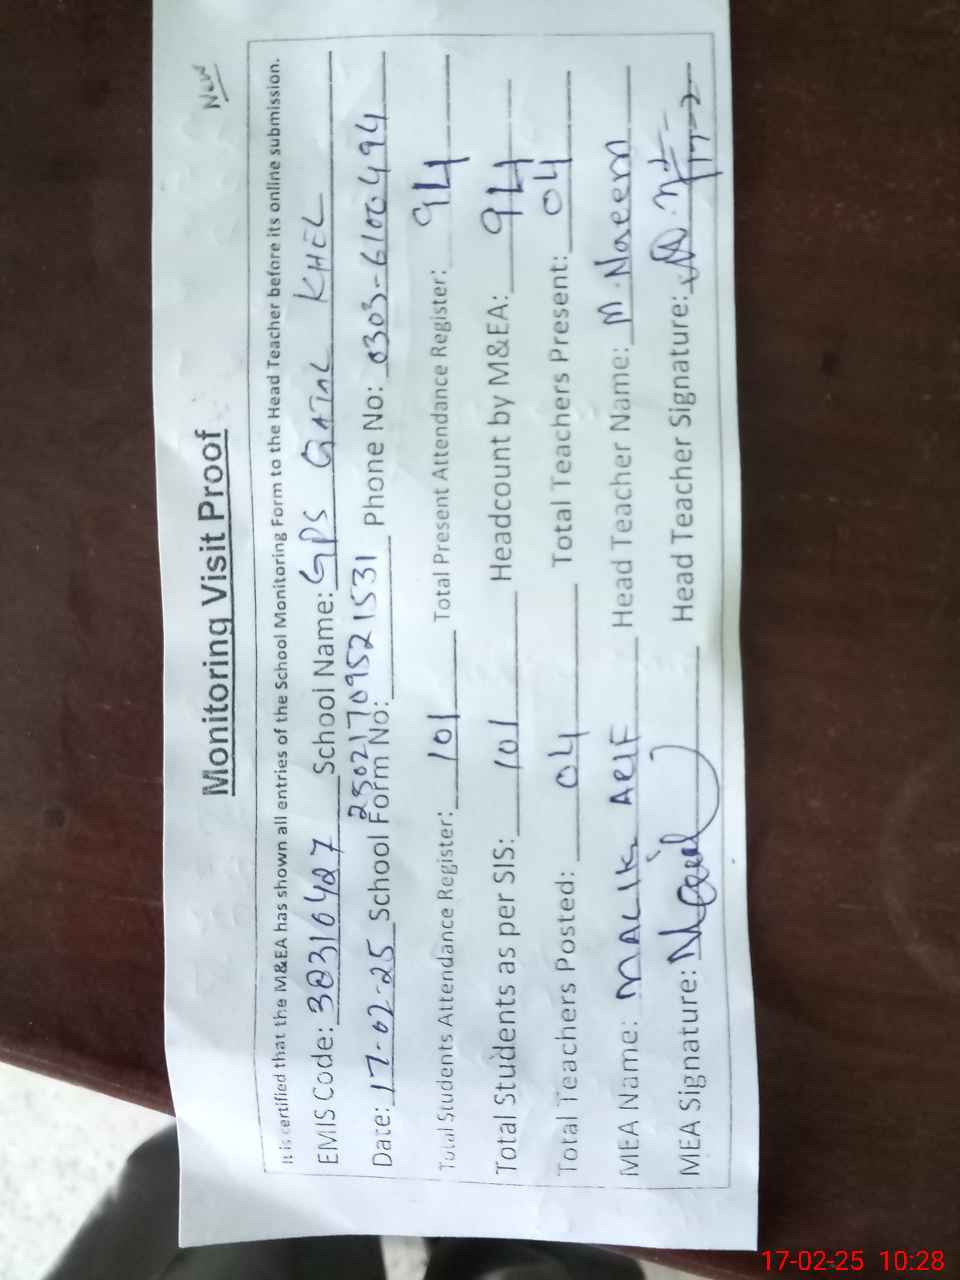 NEW
Monitoring Visit Proof
It is certified that the M&EA has shown all entries of the School Monitoring Form to the Head Teacher before its online submission.
EMIS Code: 38310427 School Name: GPS GATAL KHEL
Date: 17-02-25 School Form No: 25021709521531 Phone No: 0303-6100494
Total Students Attendance Register: 101 Total Present Attendance Register: 94
Total Students as per SIS: 101 Headcount by M&EA: 94
Total Teachers Posted: 04 Total Teachers Present: 04
MEA Name: MALIK ARIF Head Teacher Name: M. Naeem
MEA Signature: Head Teacher Signature:
17-02-25 10:28